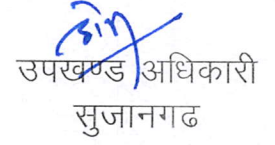 उपखण्ड अधिकारी
सुजानगढ